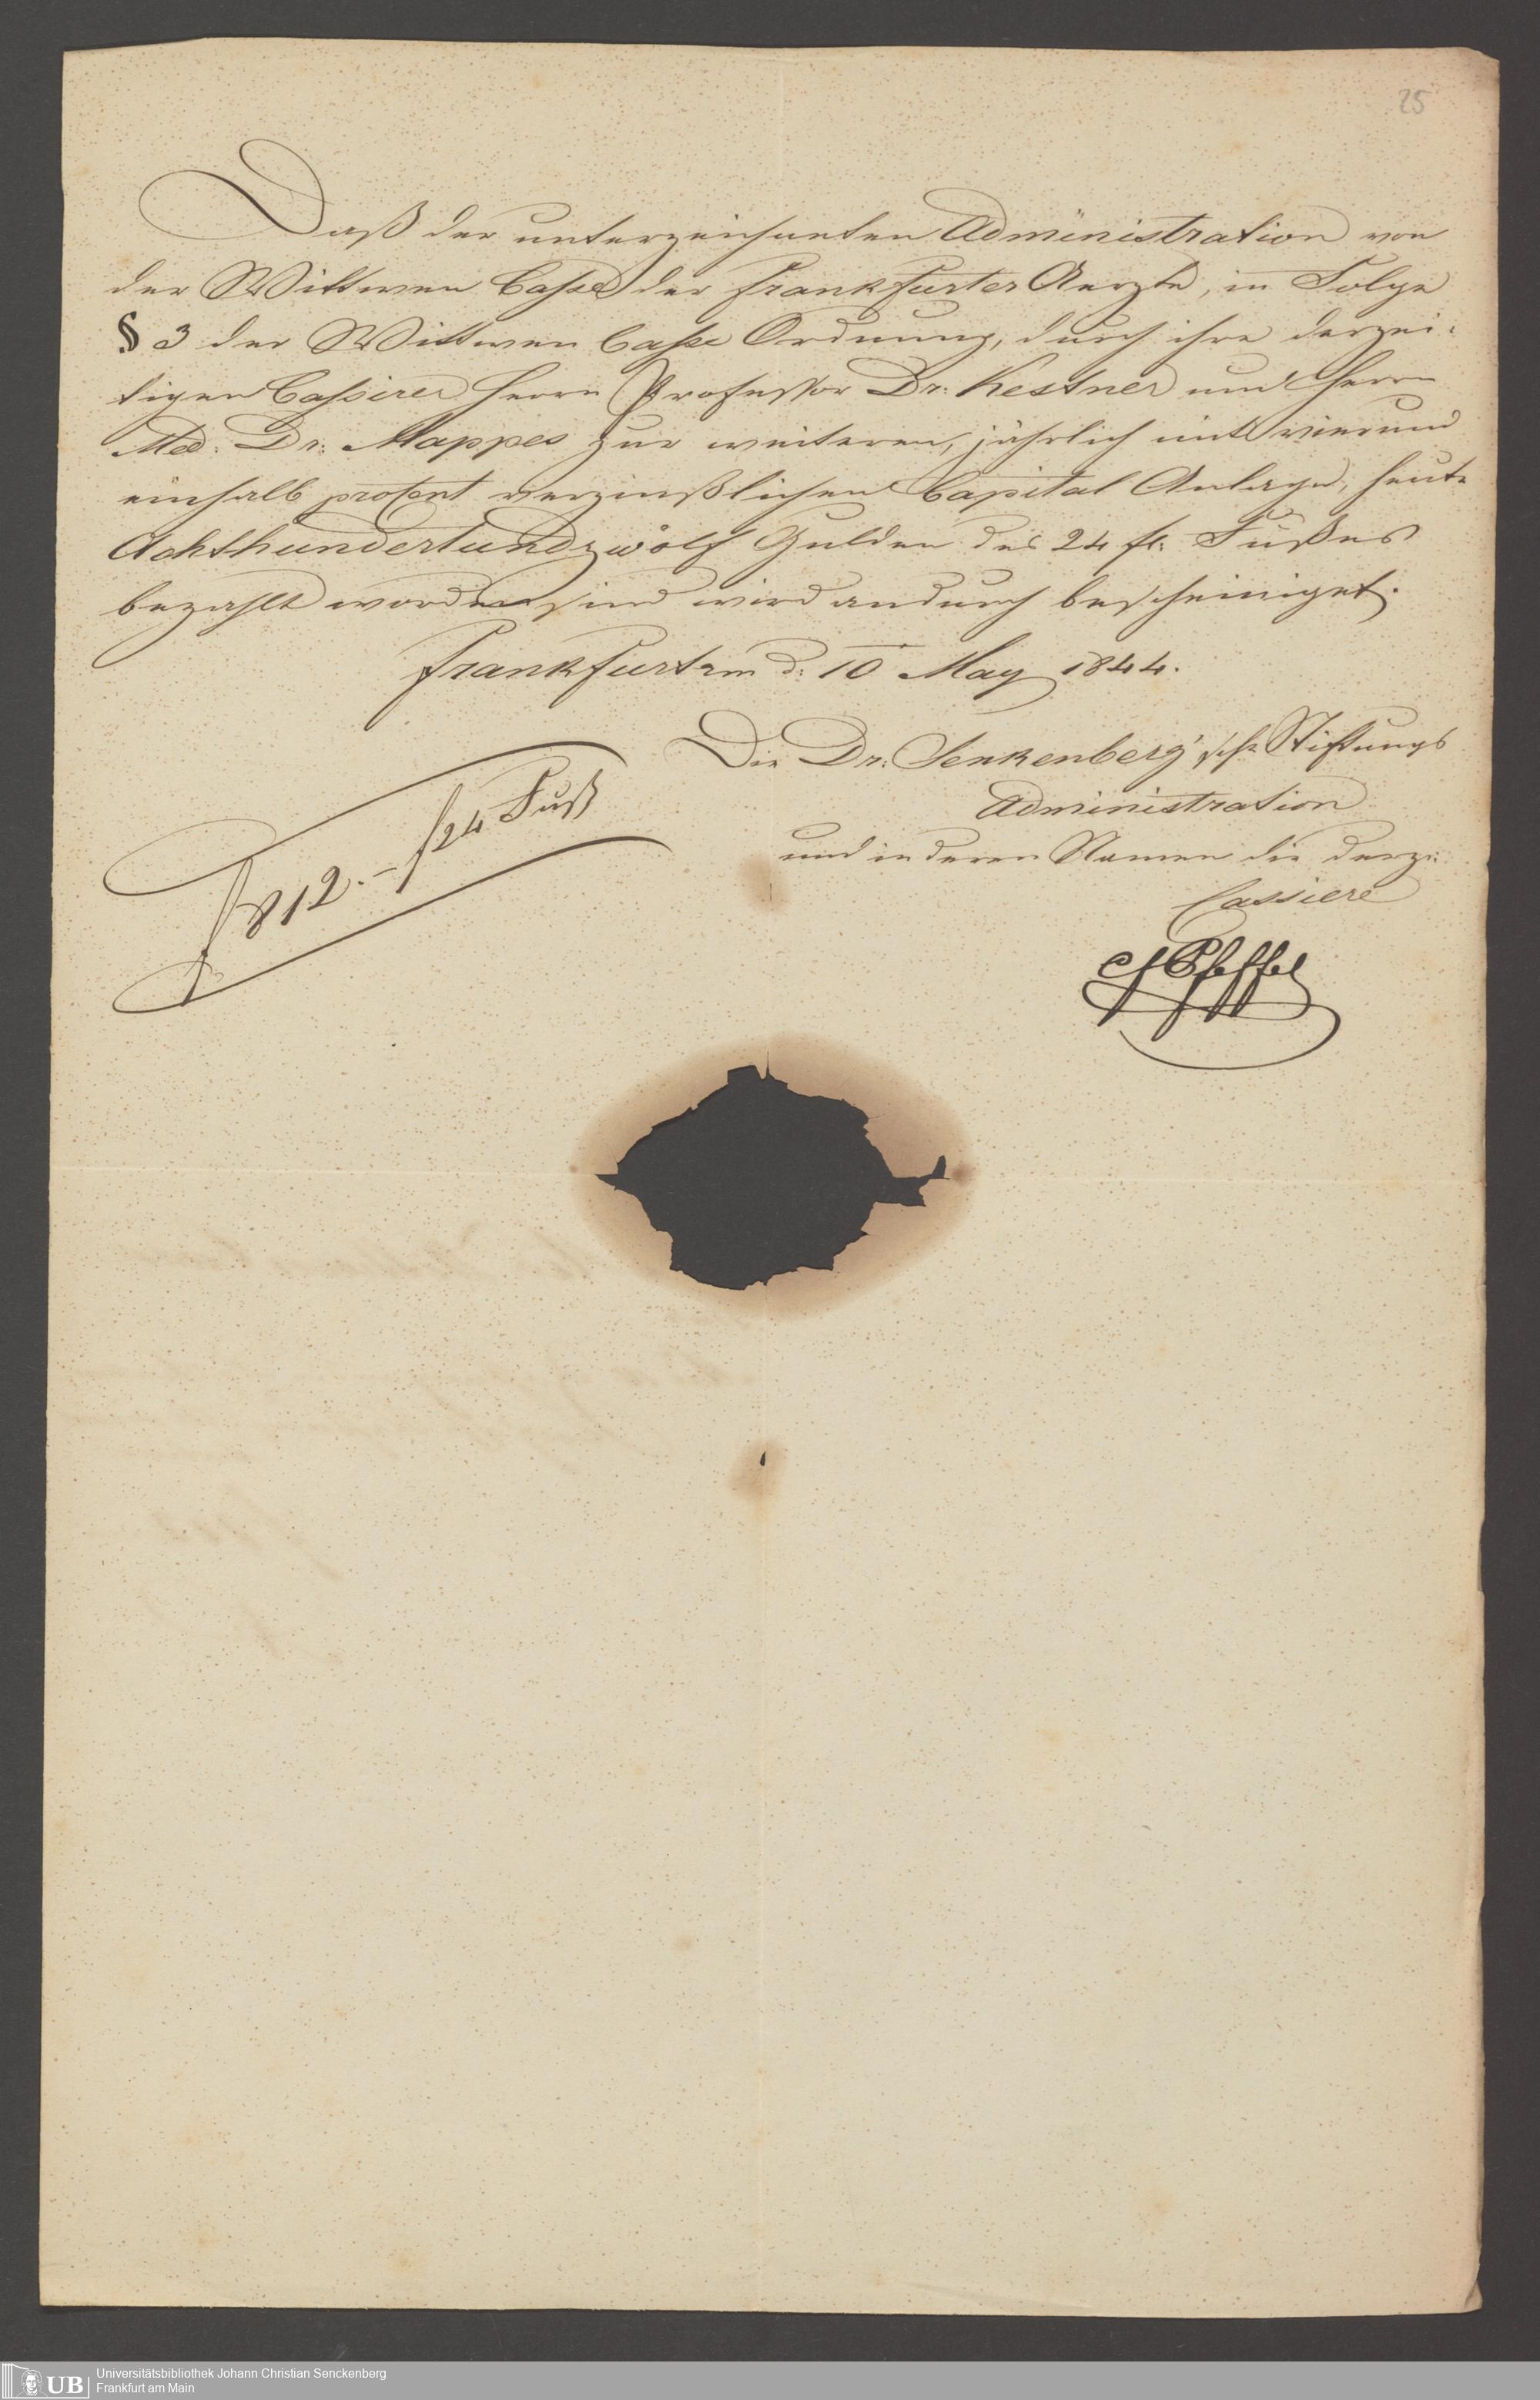 25
Daß der unterzeichneten Administration von
der Wittwen Casse der Frankfurter Aerzte, in Folge
§ 3 der Wittwen Casse Ordnung, durch ihre derzei-
tigen Cassirer Herrn Professor Dr. Kestner und Herrn
Med. Dr. Mappes zur weiteren, jährlich mit vierund
einhalb procent verzinßlichen Capital Anlage, heute
Achthundertundzwölf Gulden des 24 fl. Fußes
bezahlt worden sind wird andurch bescheiniget.
Frankfurt am d. 10 May 1844.
Die Dr. Senkenberg'sche Stiftungs
Administration
und in deren Namen die derz.
Cassiere
f 812.– f 24 Fuß
Pfeffel
UB
Universitätsbibliothek Johann Christian Senckenberg
Frankfurt am Main